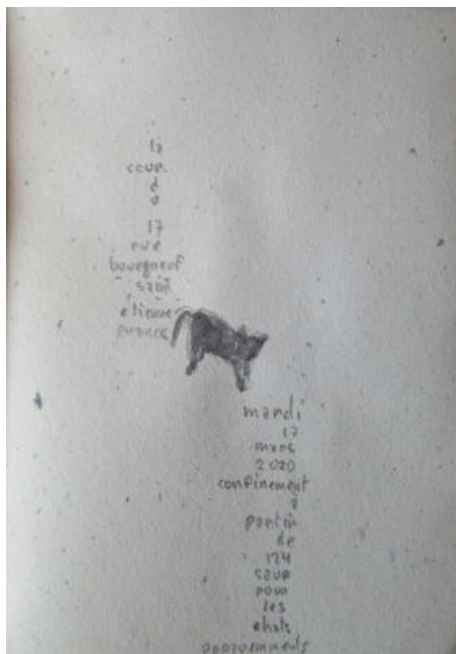 la
cour
d
u
17
rue
bourgneuf
saint
étienne
france
mardi
17
mars
2020
confinement
à
partir
de
sauf
pour
les
chats